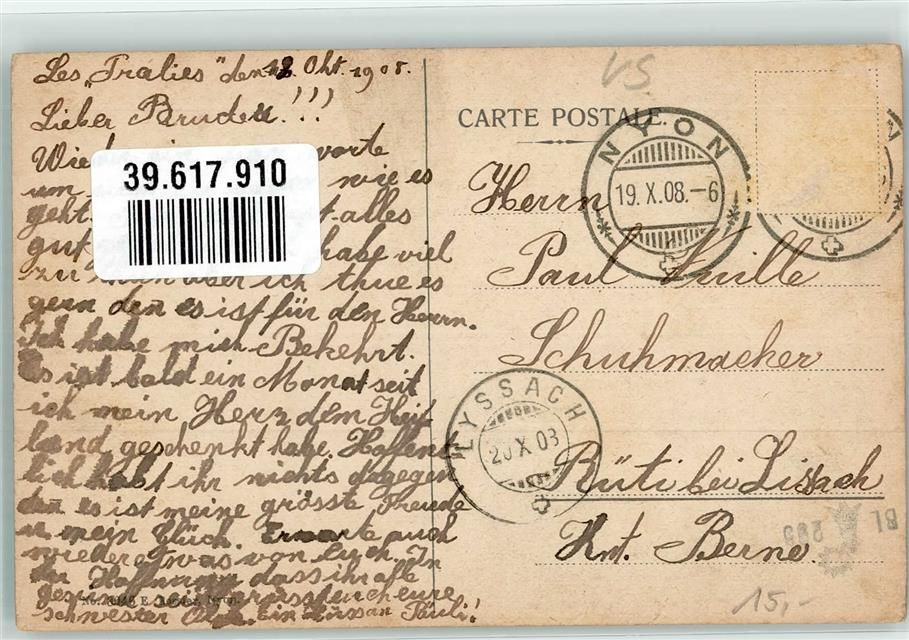 Les „Tralies" den 18. Okt. 1908.
Lieber Bruder!!!
um wie es
geht alles
gut habe viel
zu aber ich thue es
gern den es ist für den Herrn.
Ich habe mich Bekehrt.
Es ist bald ein Monat seit
ich mein Herz dem Hei
land geschenkt habe. Hoffent
lich habt ihr nichts dagegen
den es ist meine grösste Freude
u. mein Glück. Erwarte auch
wieder etwas von Euch. In
der Hoffnung dass ihr alle
gesund seid grüsst euch eure
schwester ein Pauli!
39.617.910
VS
CARTE POSTALE.
NYON
19.X.08.-6
Herrn
Paul
Schuhmacher
LYSSACH
20 X 08
Rüti bei Lissach
Knt. Berne.
BL
15,-